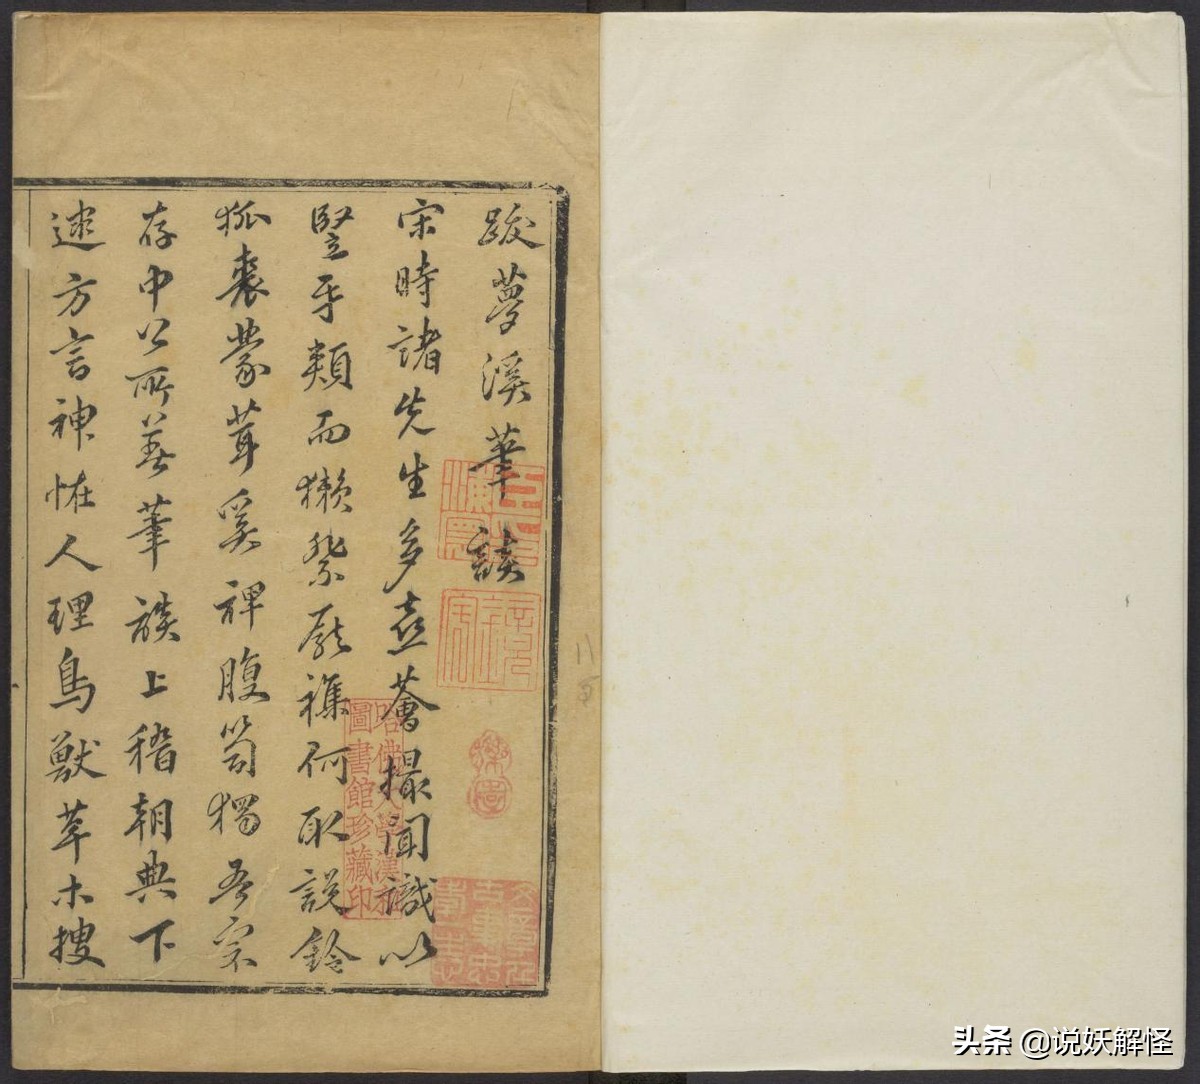 跋夢溪筆談
宋時諸先生多喜薈撮聞識以
豎牙類而獺祭厖襍何取說鈴
狐裘蒙茸奚裨腹笥獨吾宗
存中公所著筆談上稽朝典下
逮方言神恠人理鳥獸草木搜
哈佛大學漢和
圖書館珍藏印
头条 @说妖解怪